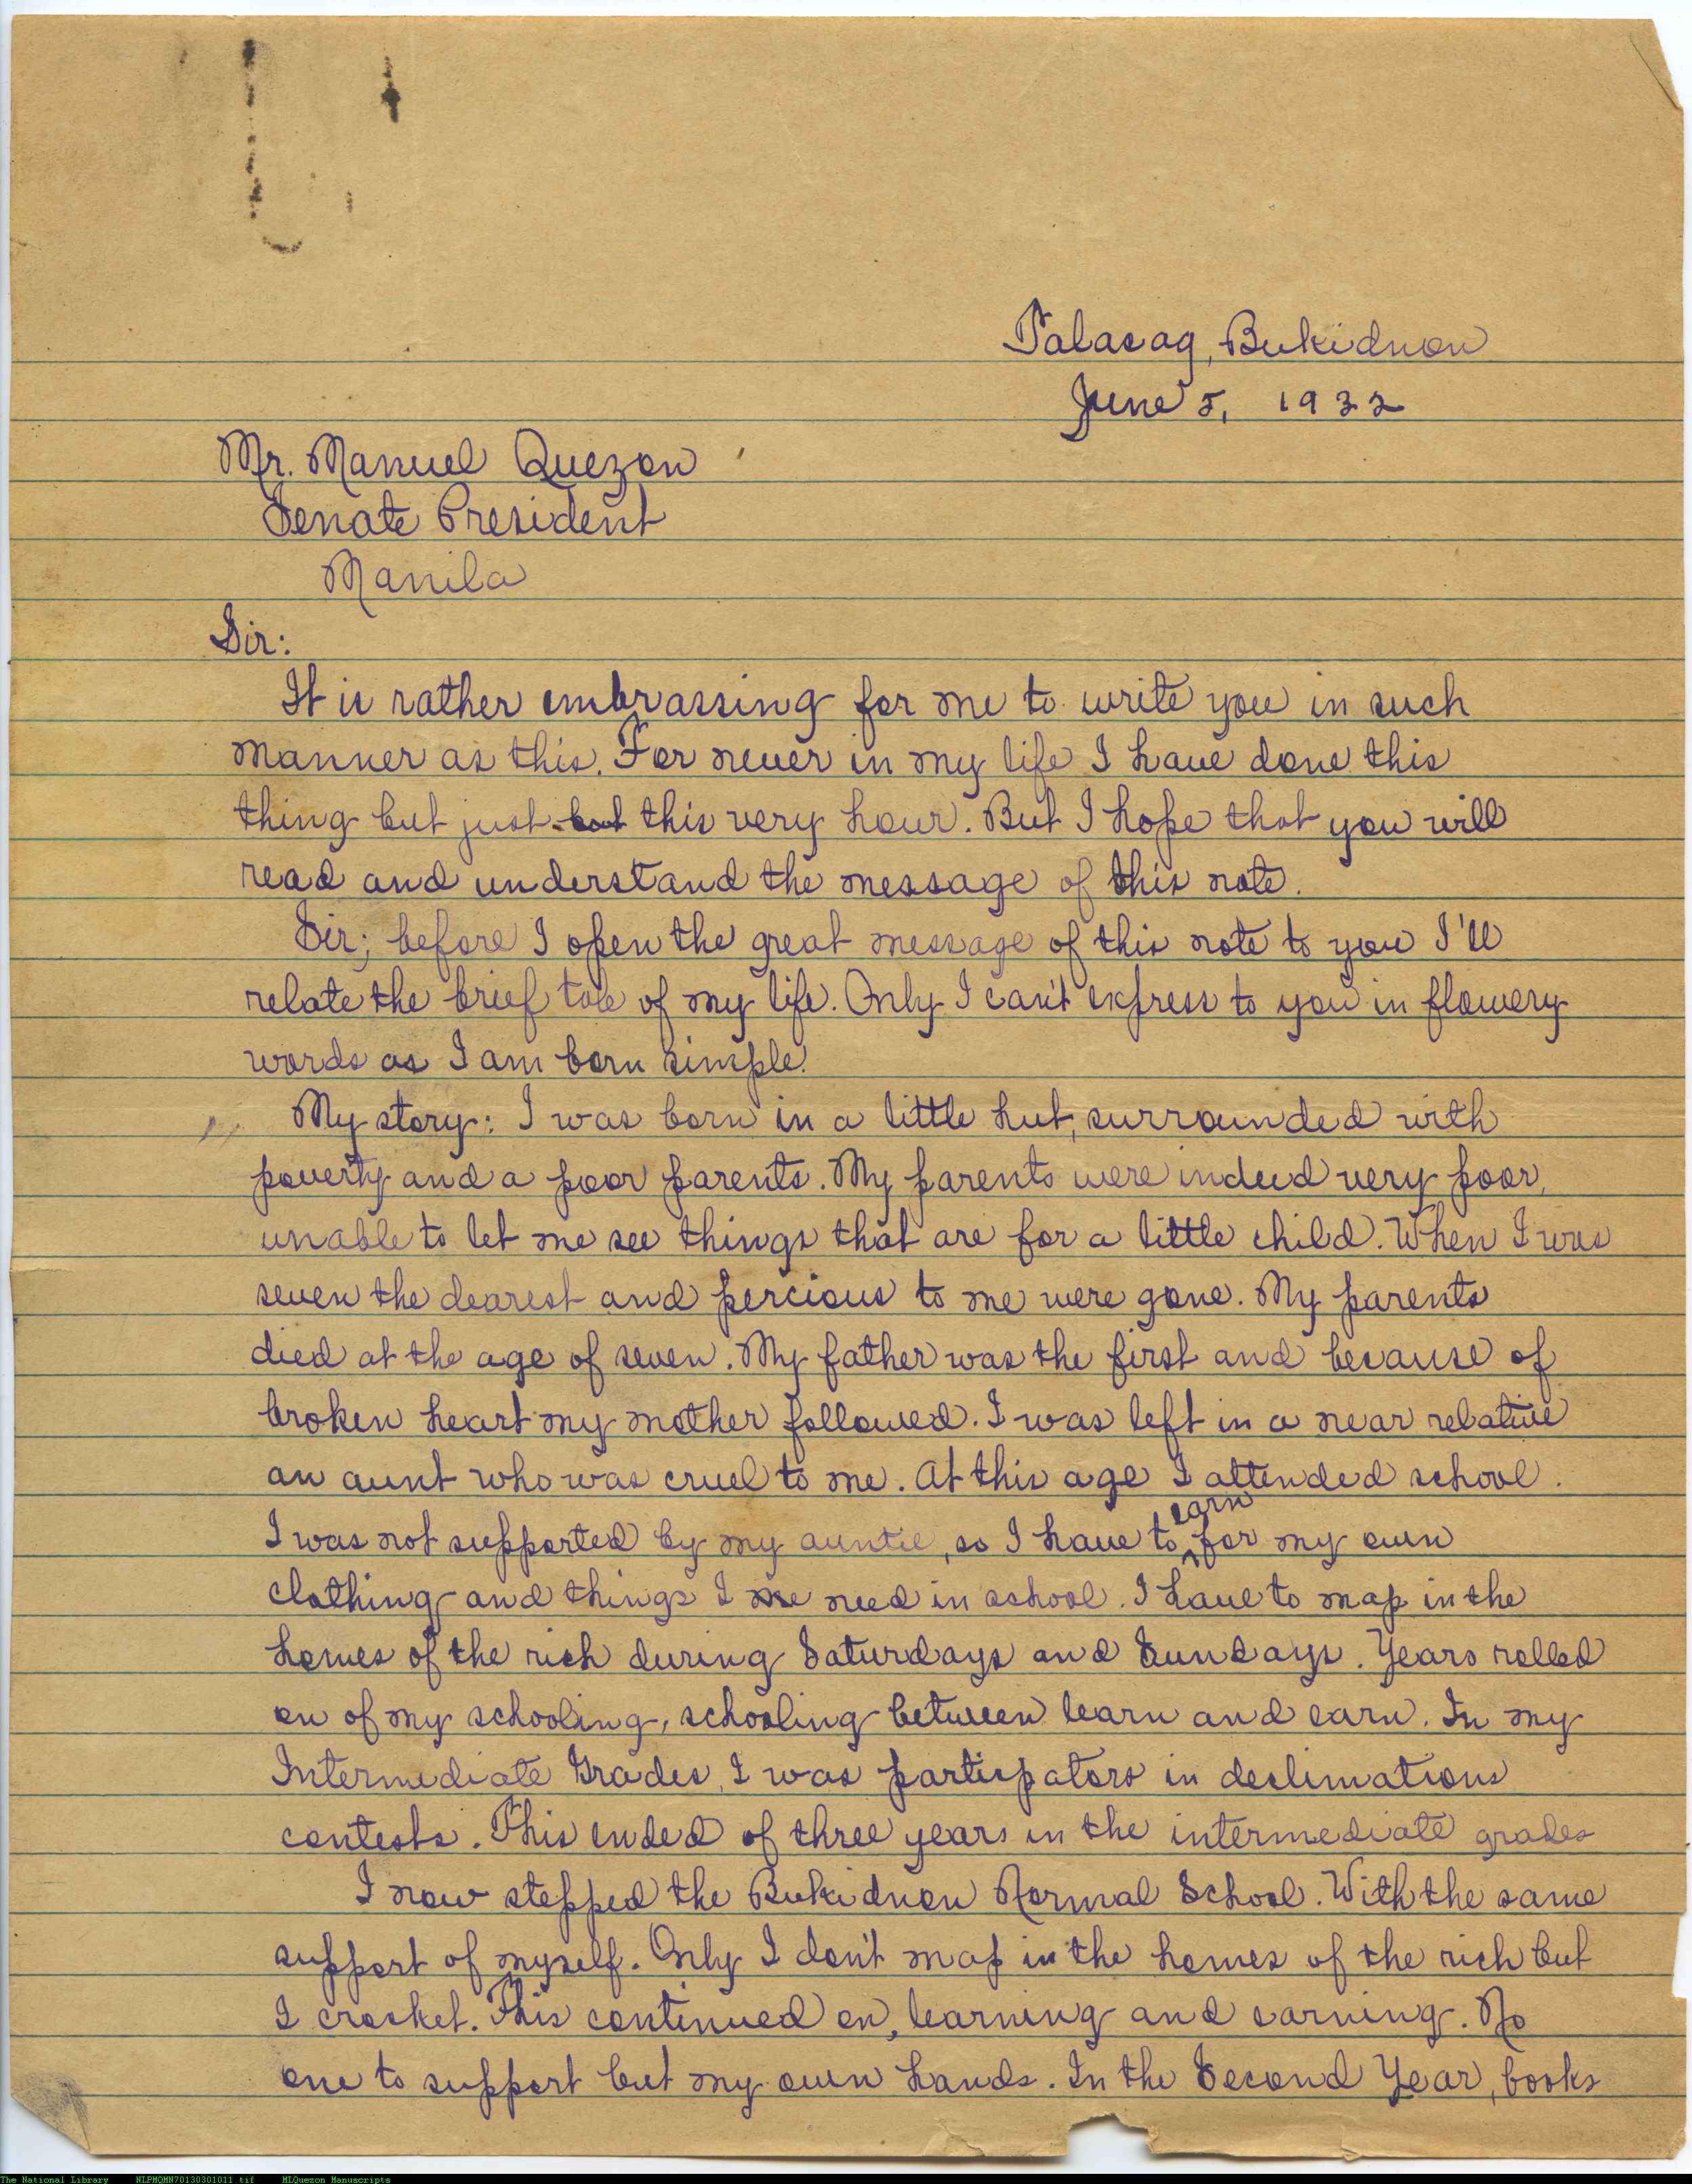 Talacag, Bukidnon
June 5, 1932
Mr. Manuel Quezon
Senate President
Manila
Sir:
It is rather embrassing for me to write you in such
manner as this. For never in my life I have done this
thing but just but this very hour. But I hope that you will
read and understand the message of this note.
Sir; before I open the great message of this note to you I'll
relate the brief tale of my life. Only I can't express to you in flowery
words as I am born simple.
My story: I was born in a little hut, surrounded with
poverty and a poor parents. My parents were indeed very poor,
unable to let me see things that are for a little child. When I was
seven the dearest and percious to me were gone. My parents
died at the age of seven. My father was the first and because of
broken heart my mother followed. I was left in a near relative
an aunt who was cruel to me. At this age I attended school.
I was not supported by my auntie, so I have to earn for my own
clothing and things I need in school. I have to mop in the
homes of the rich during Saturdays and Sundays. Years rolled
on of my schooling, schooling between learn and earn. In my
Intermediate Grades, I was particpators in declimations
contests. This ended of three years in the intermediate grades
I now stepped the Bukidnon Normal School. With the same
support of myself. Only I don't mop in the homes of the rich but
I crocket. This continued on, learning and earning. No
one to support but my own hands. In the Second Year, books
The National Library NLPMQMN70130301011.tif MLQuezon Manuscripts